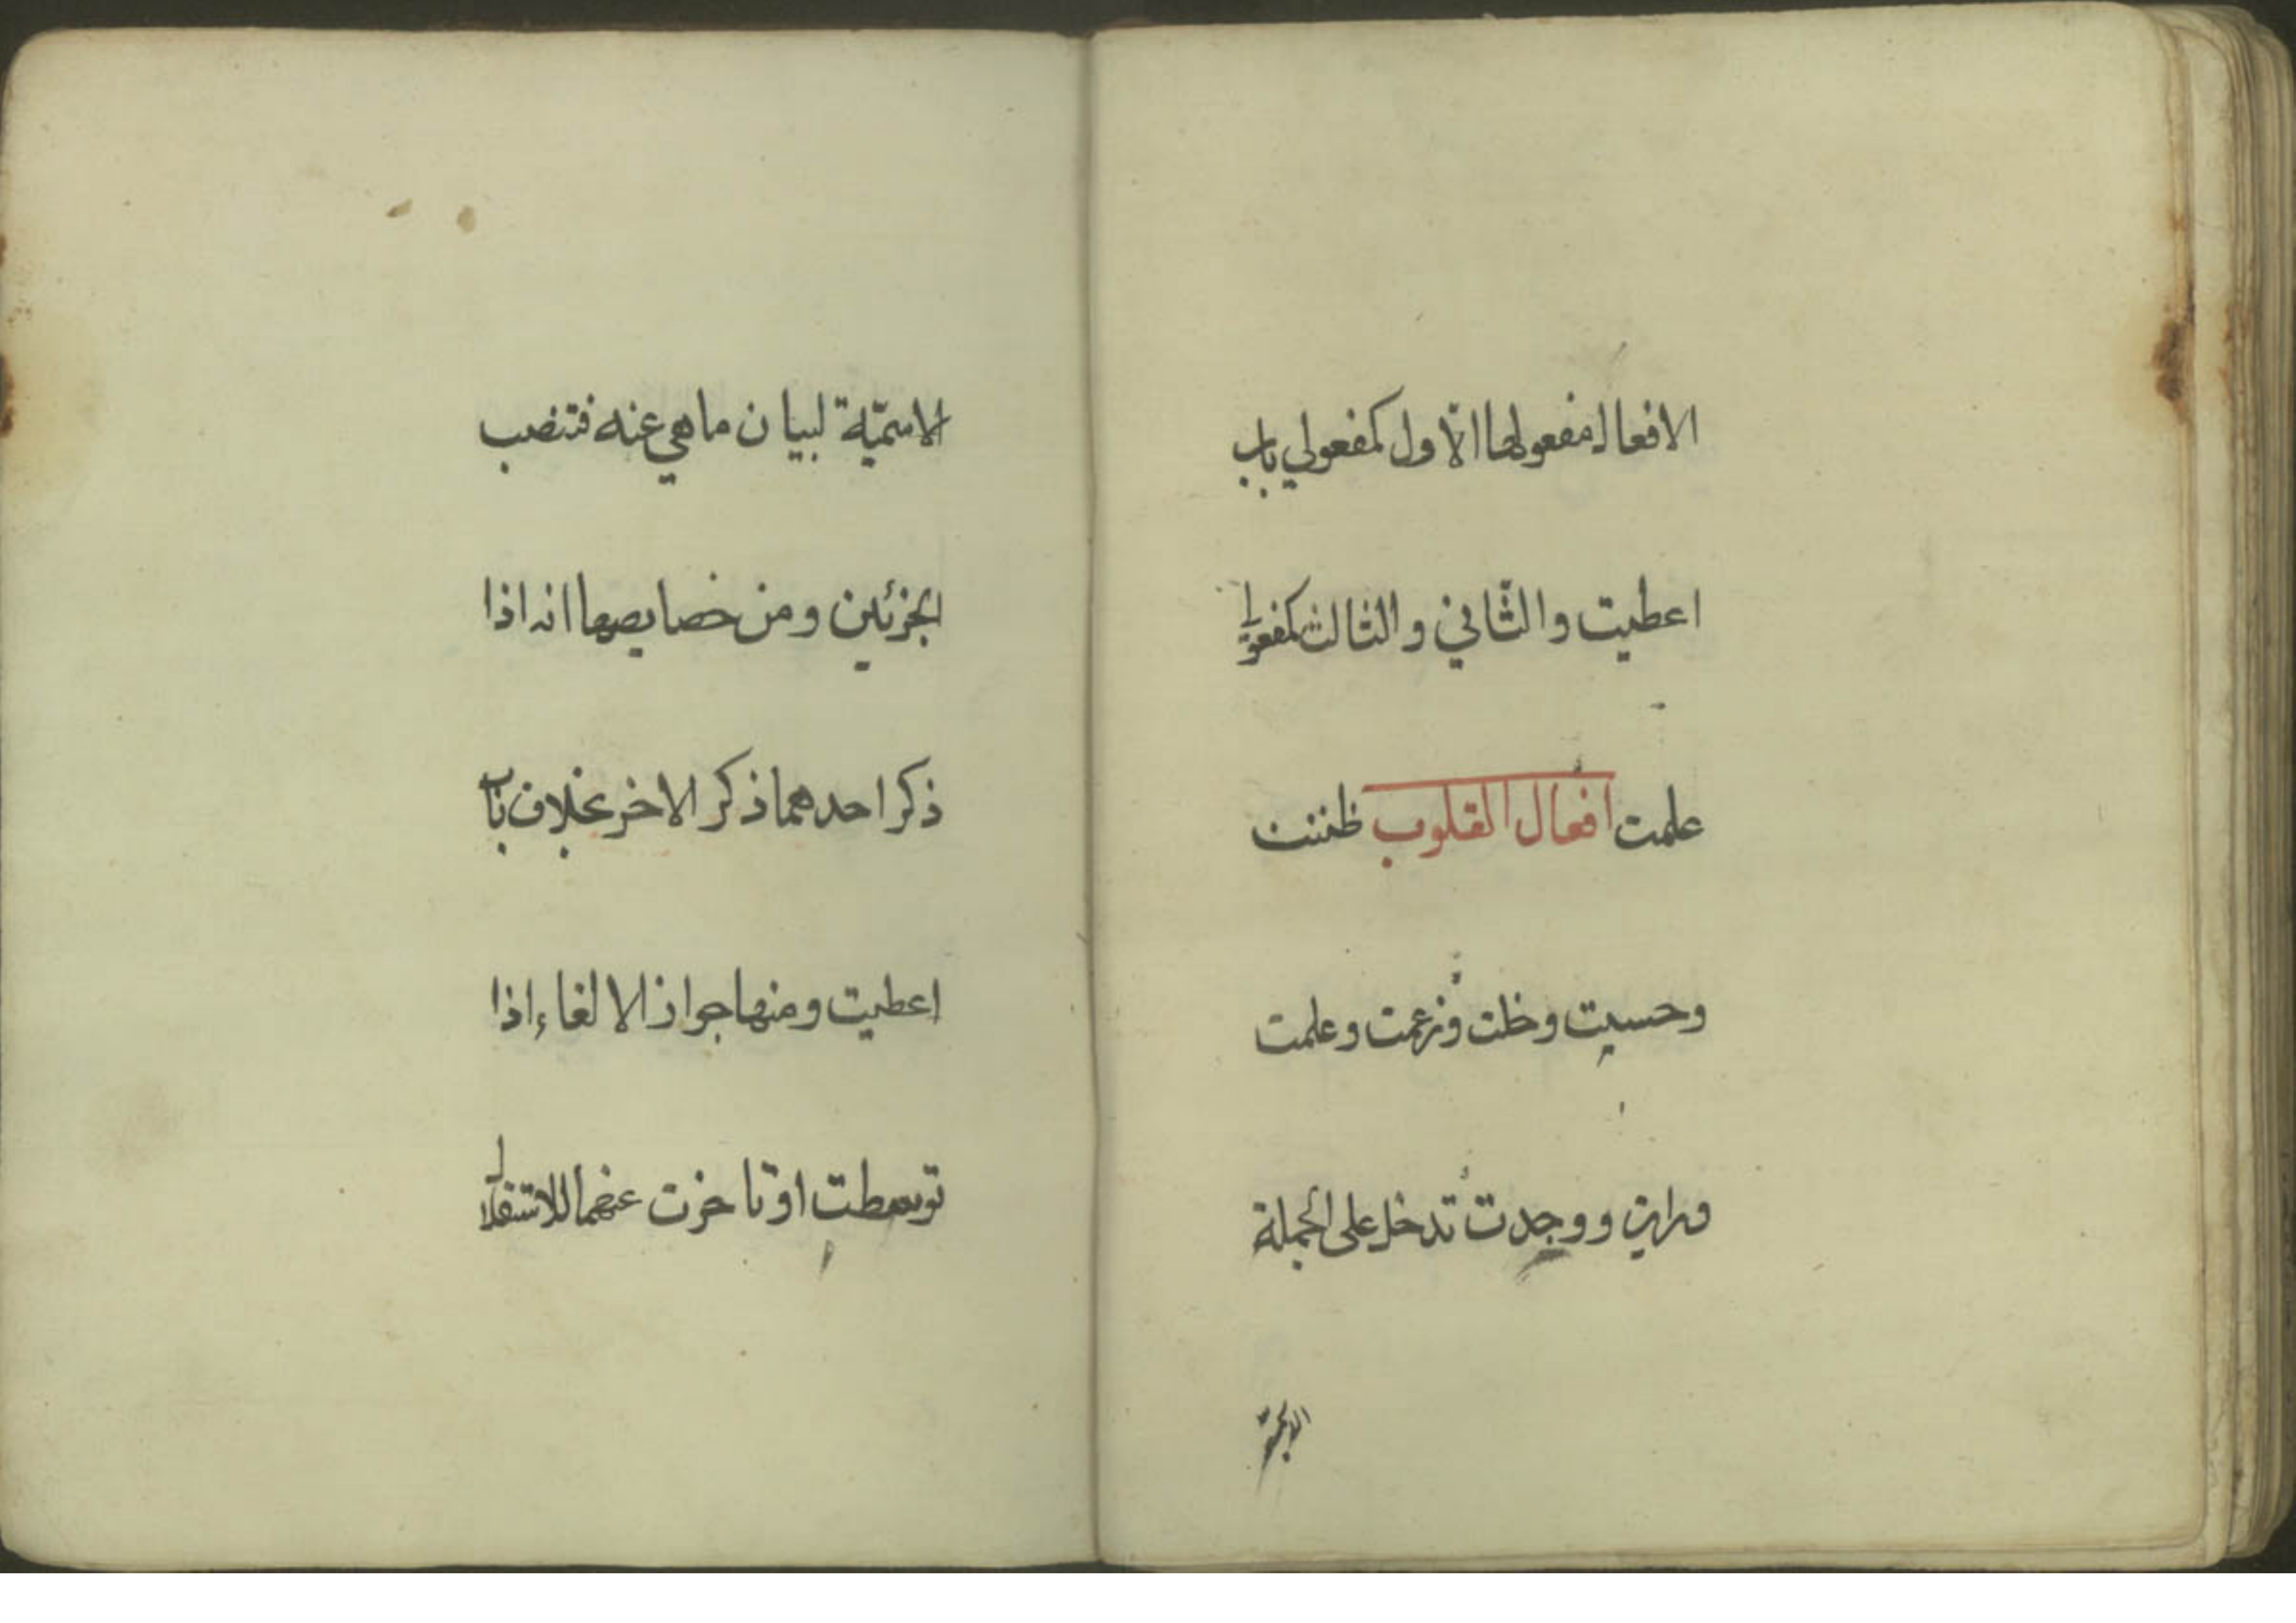 الافعال مفعولها الاّول كمفعولي باب
اعطيت والثّاني والثالث كمفعولي
علمت افعال القلوب ظننت
وحسبت وخلت وزعمت وعلمت
ورايت ووجدت تدخل على الجملة
الاسميّة لبيان ما هي عنه فتنصب
الجزئين ومن خصايصها انه اذا
ذكر احدهما ذكر الاخر بخلاف باب
اعطيت ومنها جواز الالغاء اذا
توسطت او تاخرت عنهما للاستقلال